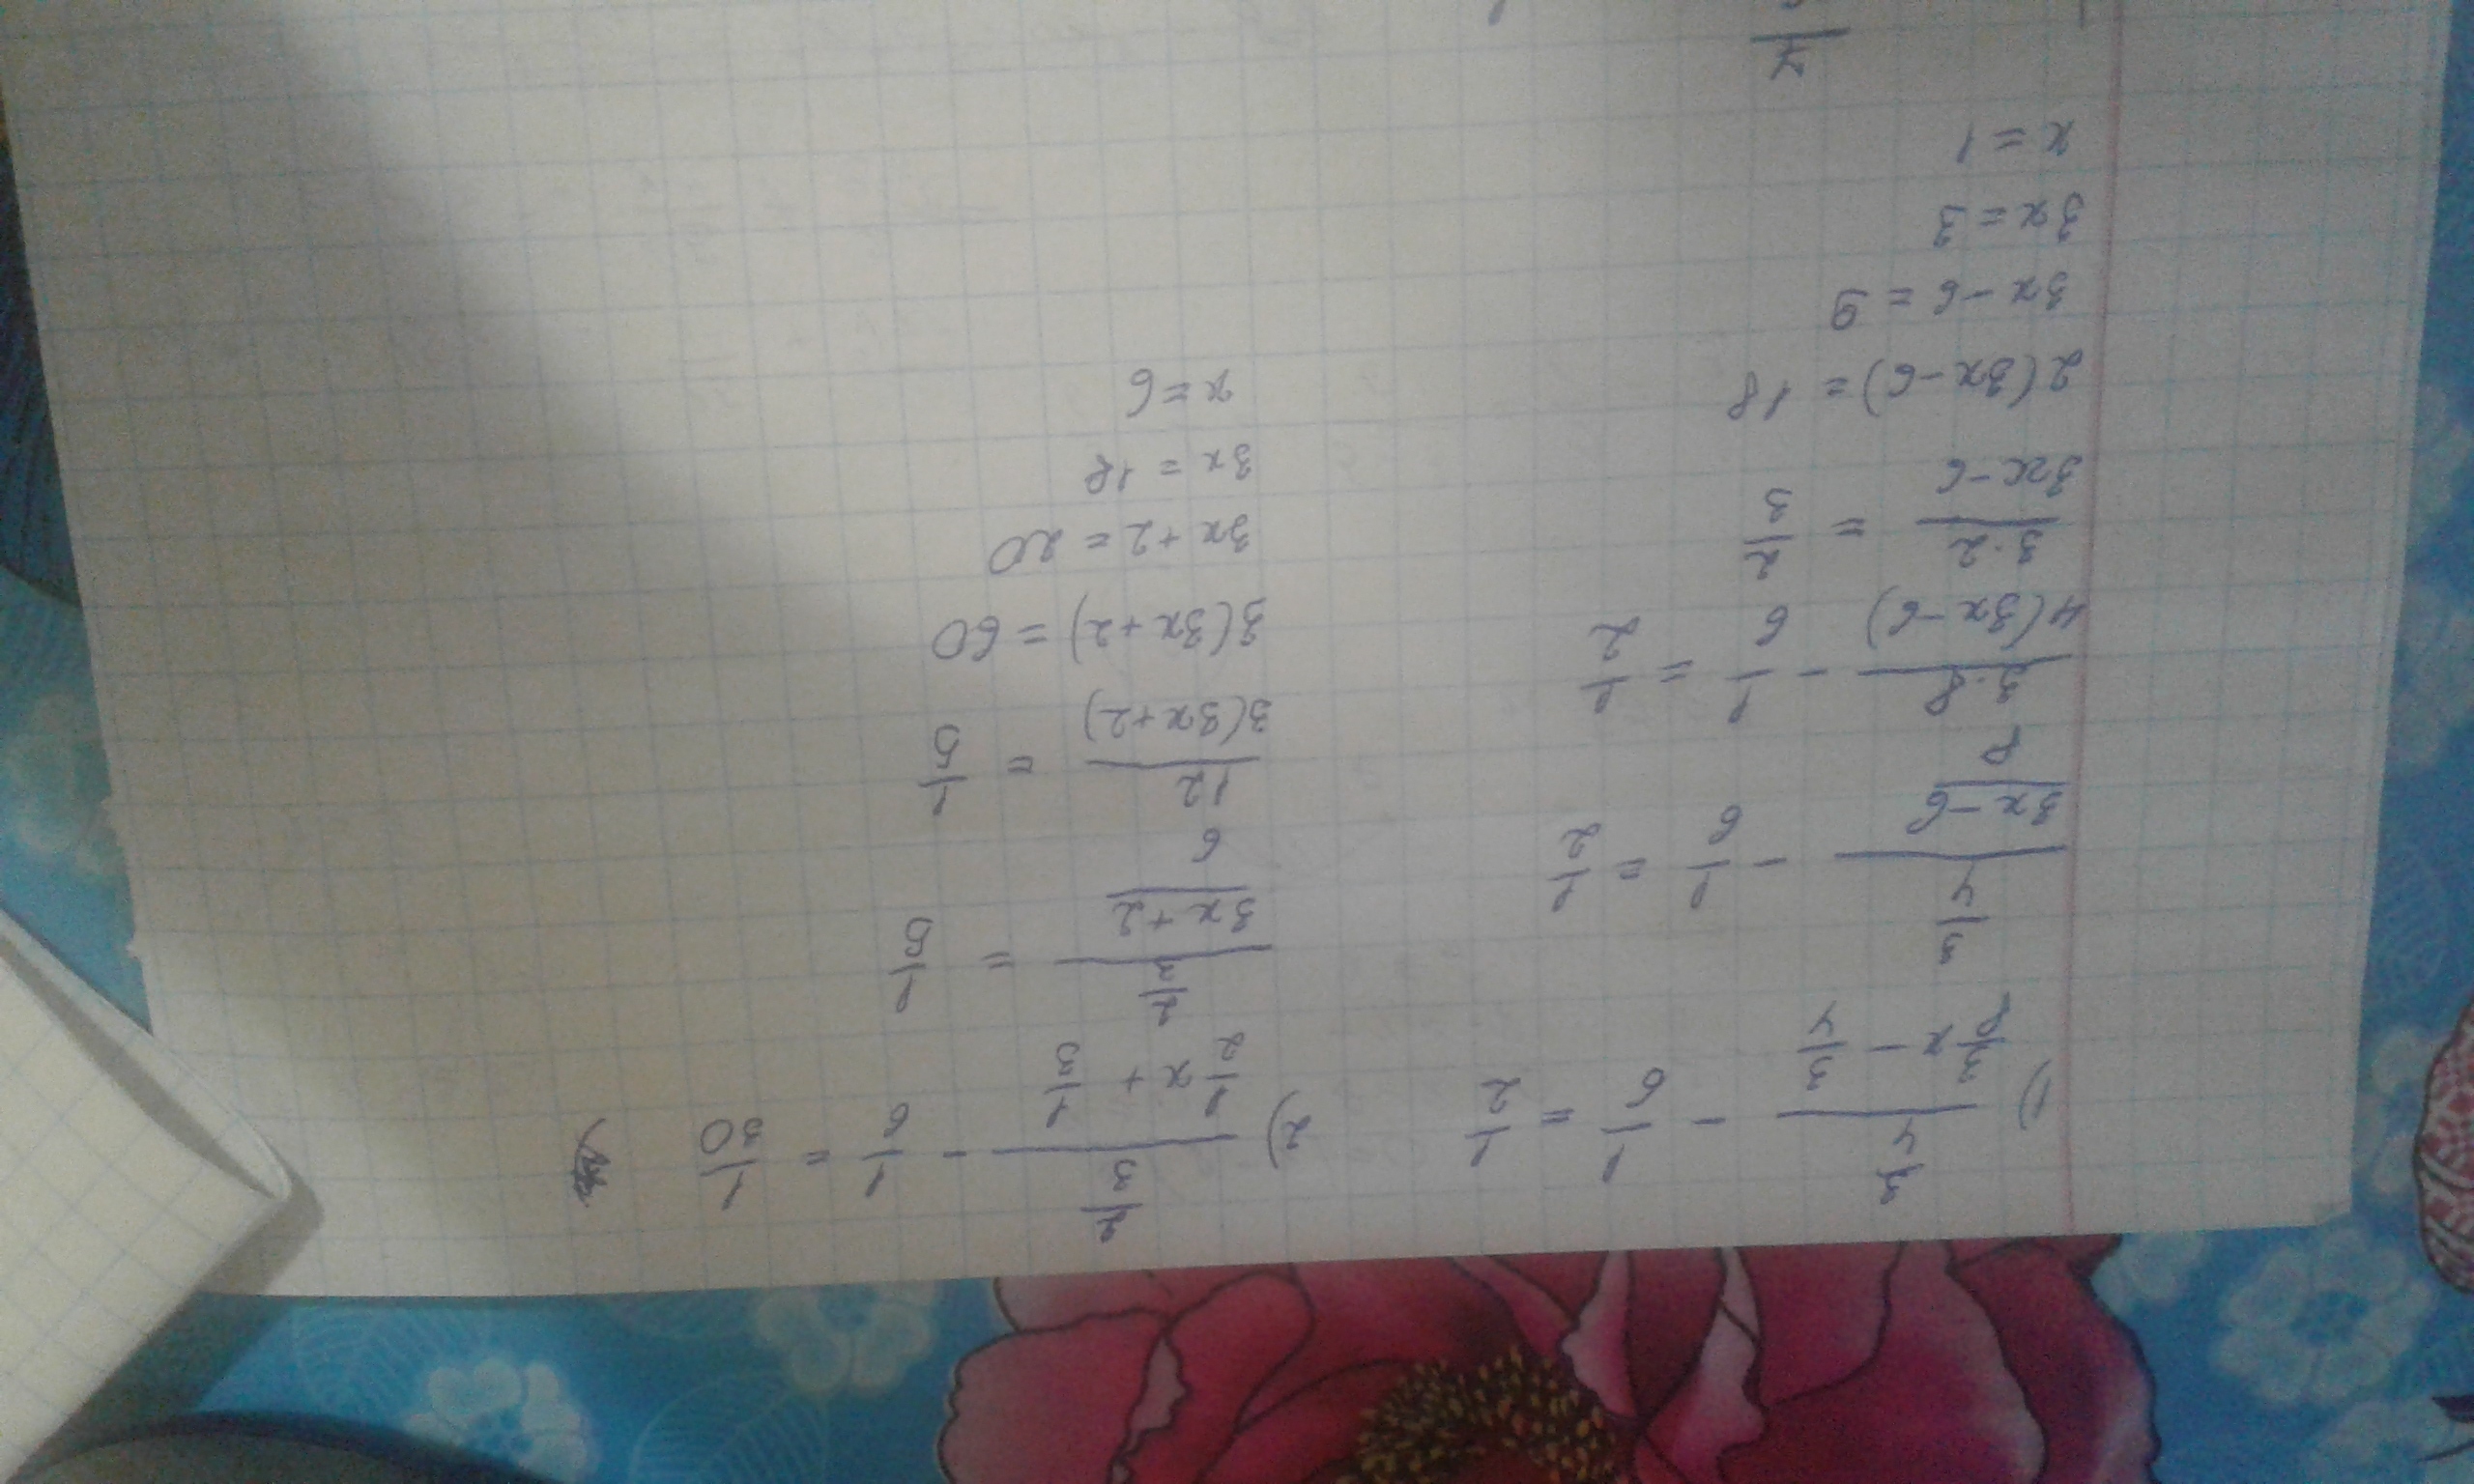 1) (3/4)/(3/8 x − 3/4) − 1/6 = 1/2
(3/4)/((3x−6)/8) − 1/6 = 1/2
(3·8)/(4(3x−6)) − 1/6 = 1/2
(3·2)/(3x−6) = 2/3
2(3x−6) = 18
3x−6 = 9
3x = 3
x = 1
2) (2/3)/(1/2 x + 1/3) − 1/6 = 1/30
(2/3)/((3x+2)/6) = 1/5
12/(3(3x+2)) = 1/5
3(3x+2) = 60
3x+2 = 20
3x = 18
x = 6